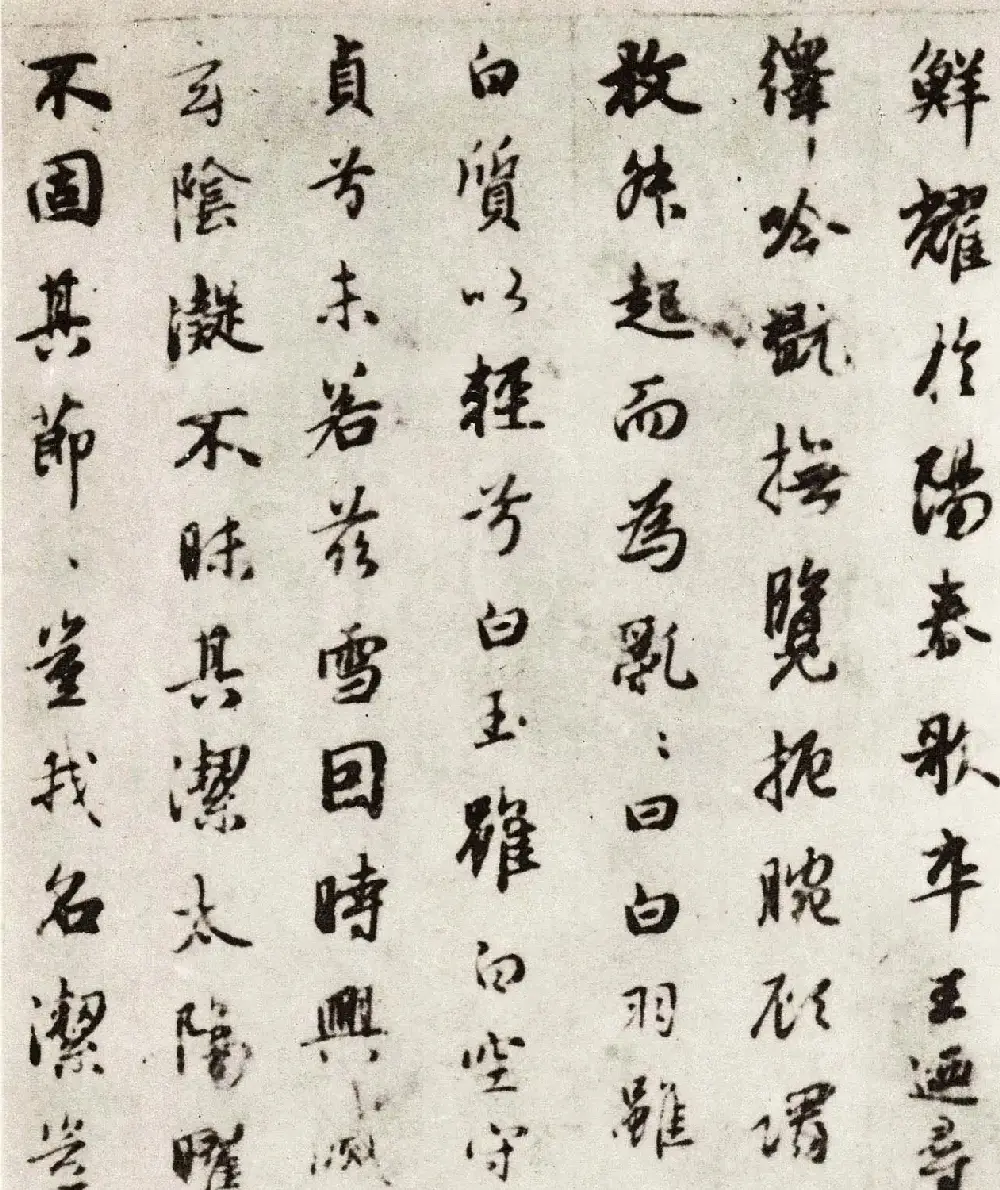 鮮耀於陽春歌卒王迺尋
繹吟翫撫覽扼腕顧謂
枚叔起而為亂〻曰白羽雖
白質以輕兮白玉雖白空守
貞兮未若茲雪因時興滅
玄陰凝不昧其潔太陽曜
不固其節〻豈我名潔豈